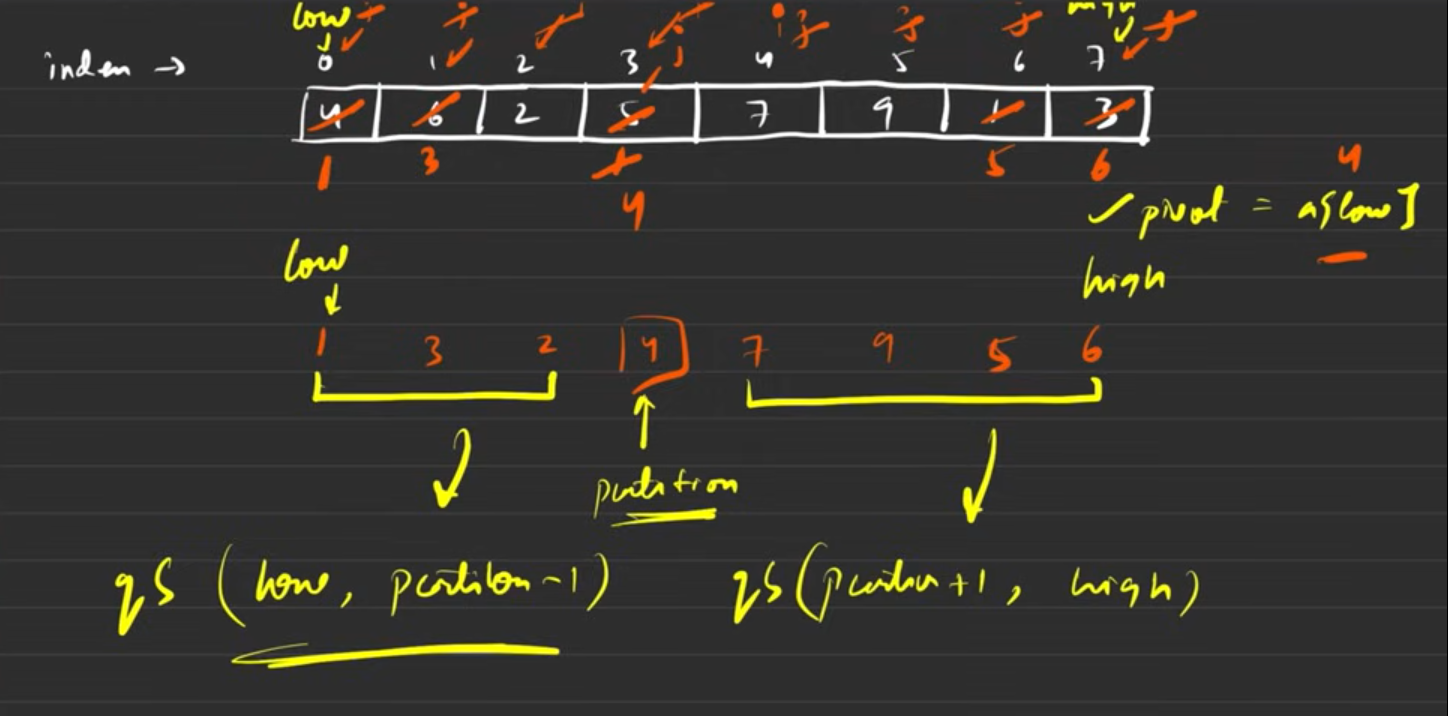 low high
index → 0 1 2 3 j 4 5 6 7
4 6 2 5 7 9 1 3
1 3 1 5 6 4
4 pivot = a[low]
low high
1 3 2 4 7 9 5 6
partition
qS (low, partition-1) qS(partition+1, high)